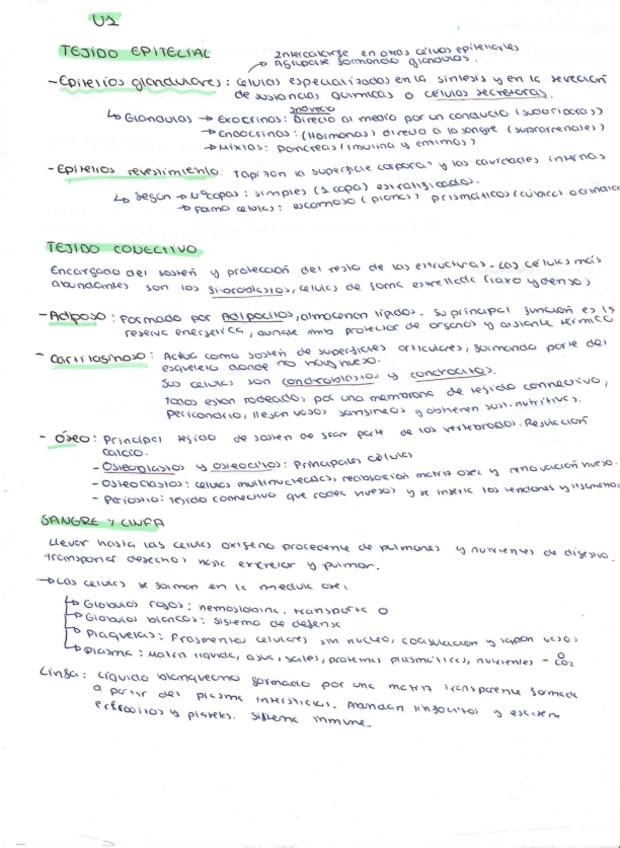 U1
TEJIDO EPITELIAL
Intercalarse en otras células epiteliales
Agruparse formando glándulas.
- Epitelios glandulares: células especializadas en la síntesis y en la secreción
de sustancias químicas o células secretoras.
indirecto
↳ Glándulas → Exocrinos: Directo al medio por un conducto (sudoríparas)
→ Endocrinos: (Hormonas) directo a la sangre (suprarrenales)
→ Mixtas: Páncreas (insulina y enzimas)
- Epitelios revestimiento: Tapizan la superficie corporal y las cavidades internas
↳ Según → Nº capas: simples (1 capa) estratificados.
→ forma células: escamoso (planas) prismáticos (cúbicas o cilíndricas
TEJIDO CONECTIVO
Encargado del sostén y protección del resto de las estructuras. Las células más
abundantes son los fibroblastos, células de forma estrellada (laxo y denso)
- Adiposo: Formado por Adipocitos, almacenan lípidos. Su principal función es la
reserva energética, aunque tmb protector de órganos y aislante térmico
- Cartilaginoso: Actúa como sostén de superficies articulares, formando parte del
esqueleto donde no hay hueso.
Sus células son condroblastos y condrocitos.
Todos están rodeados, por una membrana de tejido connectivo,
pericondrio, llegan vasos sanguíneos y obtienen sust. nutritivas.
- Óseo: Principal tejido de sostén de gran parte de los vertebrados. Regulación
calcio.
- Osteoblastos y osteocitos: Principales células
- Osteoclastos: células multinucleadas, reabsorción matriz ósea y renovación hueso.
- Periostio: tejido connectivo que rodea huesos y se inserta los tendones y ligamentos
SANGRE Y LINFA
Llevar hasta las células oxígeno procedente de pulmones y nutrientes de digestivo.
Transportar desechos hasta excretor y pulmón.
→ Las células se forman en la médula ósea
↳ Glóbulos rojos: hemoglobina. transporte O
↳ Glóbulos blancos: sistema de defensa
↳ Plaquetas: Fragmentos celulares, sin núcleo, coagulación y tapón vasos
↳ Plasma: Matriz líquida, agua, sales, proteínas plasmáticas, nutrientes - O CO2
Linfa: Líquido blanquecino formado por una matriz transparente formada
a partir del plasma intersticial. Abundan linfocitos y escasean
eritrocitos y plaquetas. Sistema inmune.